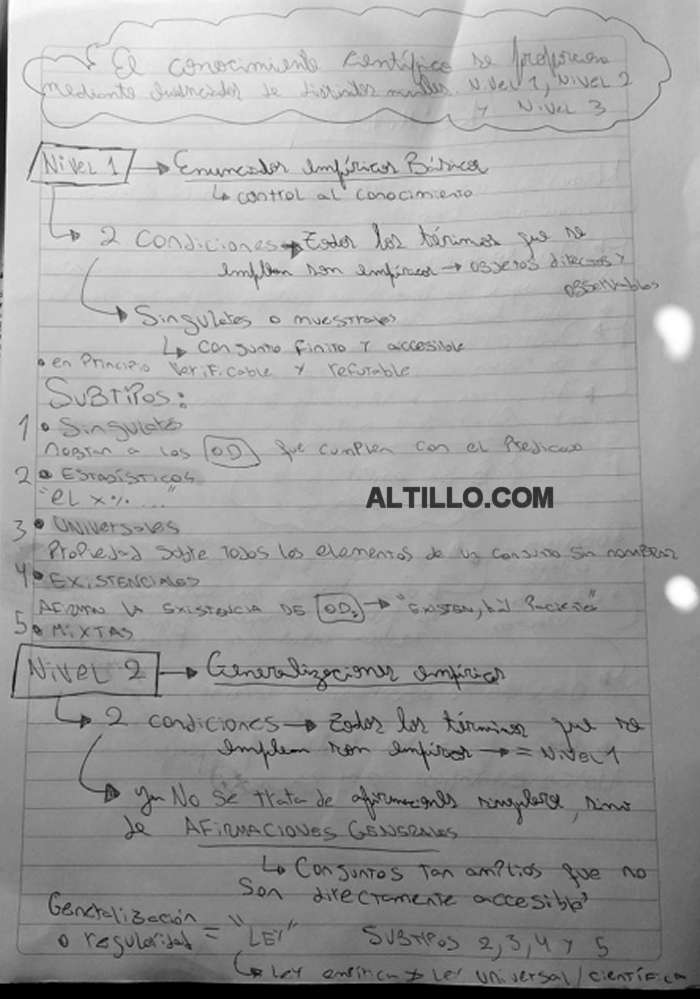 El conocimiento científico se proporciona
mediante enunciados de distintos niveles. Nivel 1, Nivel 2
y Nivel 3
Nivel 1 → Enunciados empíricos Básicos
↳ control al conocimiento
↳ 2 condiciones → Todos los términos que se
emplean son empíricos → objetos directos y
observables
↳ Singulares o muestrales
↳ conjunto finito y accesible
• en principio verificable y refutable
Subtipos:
1 • Singulares
nombran a los OD que cumplen con el predicado
2 • Estadísticos
"el x% ..."
ALTILLO.COM
3 • Universales
Propiedad sobre todos los elementos de un conjunto sin nombrar
4 • Existenciales
Afirman la existencia de OD → "Existen, hay
5 • Mixtas
Nivel 2 → Generalizaciones empíricas
↳ 2 condiciones → Todos los términos que se
emplean son empíricos → = Nivel 1
↳ ya No se trata de afirmaciones singulares, sino
de AFIRMACIONES GENERALES
↳ Conjuntos tan amplios que no
son directamente accesibles
Generalización
o regularidad = "LEY" SUBTIPOS 2, 3, 4 y 5
↳ Ley empírica ≠ Ley universal/científica